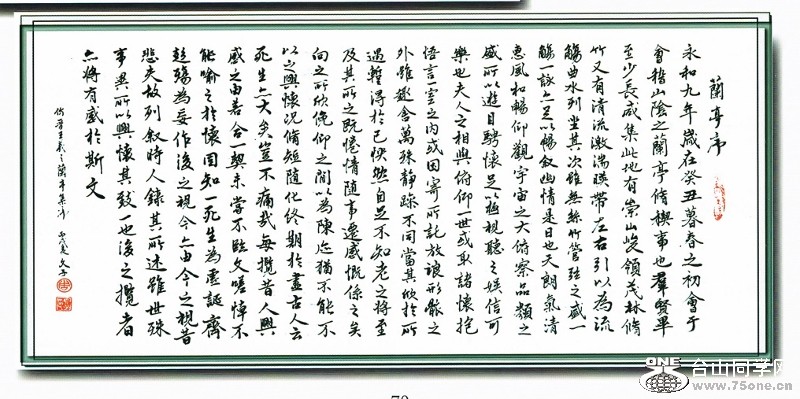 蘭亭序
永和九年歲在癸丑暮春之初會于
會稽山陰之蘭亭脩稧事也羣賢畢
至少長咸集此地有崇山峻領茂林脩
竹又有清流激湍暎帶左右引以為流
觴曲水列坐其次雖無絲竹管弦之盛一
觴一詠亦足以暢叙幽情是日也天朗氣清
惠風和暢仰觀宇宙之大俯察品類之
盛所以遊目騁懷足以極視聽之娛信可
樂也夫人之相與俯仰一世或取諸懷抱
悟言一室之內或因寄所託放浪形骸之
外雖趣舍萬殊靜躁不同當其欣於所
遇暫得於己怏然自足不知老之將至
及其所之既惓情隨事遷感慨係之矣
向之所欣俛仰之間以為陳迹猶不能不
以之興懷況脩短隨化終期於盡古人云
死生亦大矣豈不痛哉每攬昔人興
感之由若合一契未嘗不臨文嗟悼不
能喻之於懷固知一死生為虛誕齊
彭殤為妄作後之視今亦由今之視昔
悲夫故列叙時人錄其所述雖世殊
事異所以興懷其致一也後之攬者
亦將有感於斯文
仿晉王羲之蘭亭集序 文子
ONE 台山同学网
www.75one.cn